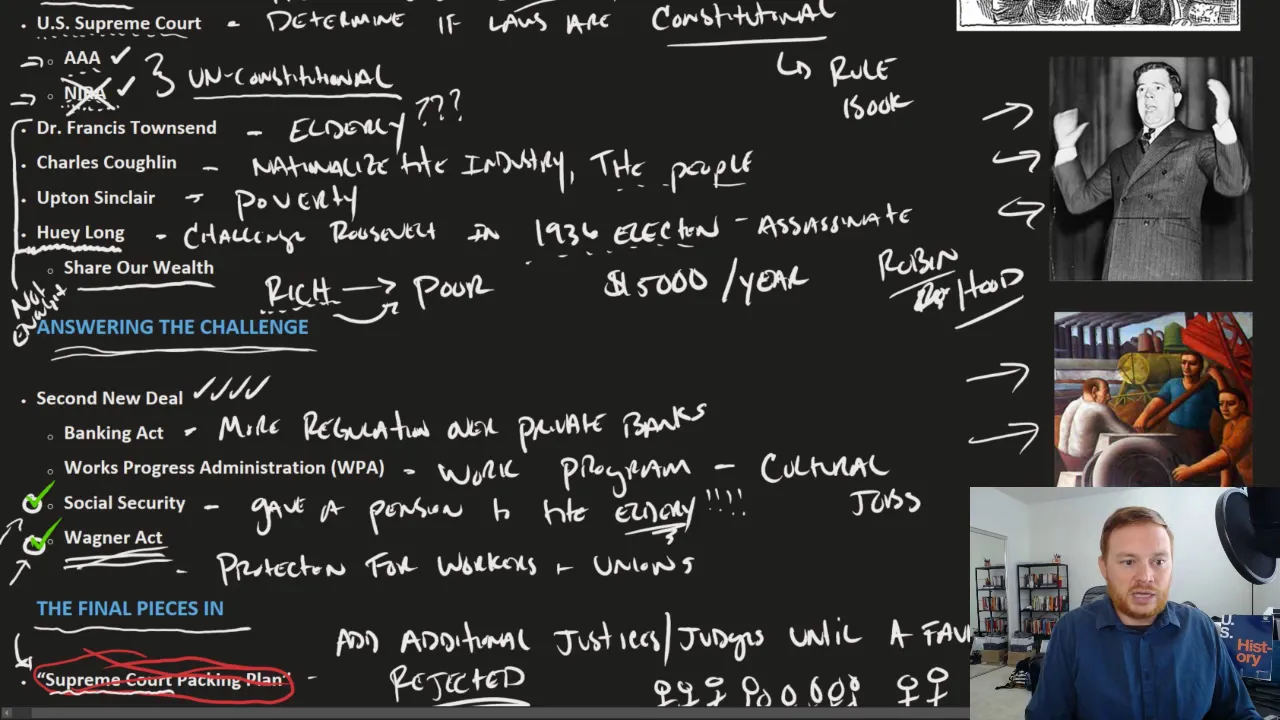 • U.S. Supreme Court - DETERMINE IF LAWS ARE CONSTITUTINAL
↳ RULE BOOK
→ ○ AAA ✓
→ ○ NIRA ✓ } UN-CONSTITUTIONAL
• Dr. Francis Townsend - ELDERLY ???
• Charles Coughlin - NATIONALIZE THE INDUSTRY, THE PEOPLE
• Upton Sinclair - POVERTY
• Huey Long - CHALLENGE ROOSEVELT IN 1936 ELECTION - ASSASSINATE
○ Share Our Wealth RICH → POOR $15000/YEAR ROBIN HOOD
NOT ENOUGH
ANSWERING THE CHALLENGE
• Second New Deal ✓✓✓✓
○ Banking Act - MORE REGULATION OVER PRIVATE BANKS
○ Works Progress Administration (WPA) - WORK PROGRAM - CULTURAL JOBS
○ Social Security - GAVE A PENSION TO THE ELDERLY !!!!
○ Wagner Act
- PROTECTION FOR WORKERS + UNIONS
THE FINAL PIECES IN
ADD ADDITIONAL JUSTICES/JUDGES UNTIL A FAV
• "Supreme Court Packing Plan" - REJECTED
U.S. Hist-ory